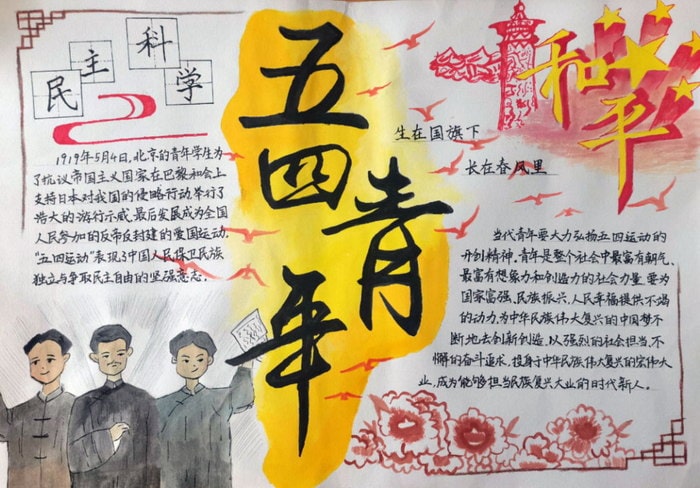 民主科学
1919年5月4日,北京的青年学生为
了抗议帝国主义国家在巴黎和会上
支持日本对我国的侵略行动,举行了
浩大的游行示威,最后发展成为全国
人民参加的反帝反封建的爱国运动,
“五四运动”表现了中国人民保卫民族
独立与争取民主自由的坚强意志。
五四青年
和平
生在国旗下
长在春风里
当代青年要大力弘扬五四运动的
开创精神,青年是整个社会中最富有朝气、
最富有想象力和创造力的社会力量,要为
国家富强、民族振兴、人民幸福提供不竭
的动力,为中华民族伟大复兴的中国梦不
断地去创新创造,以强烈的社会担当,不
懈的奋斗追求,投身于中华民族伟大复兴的宏伟大
业,成为能够担当民族复兴大业的时代新人。